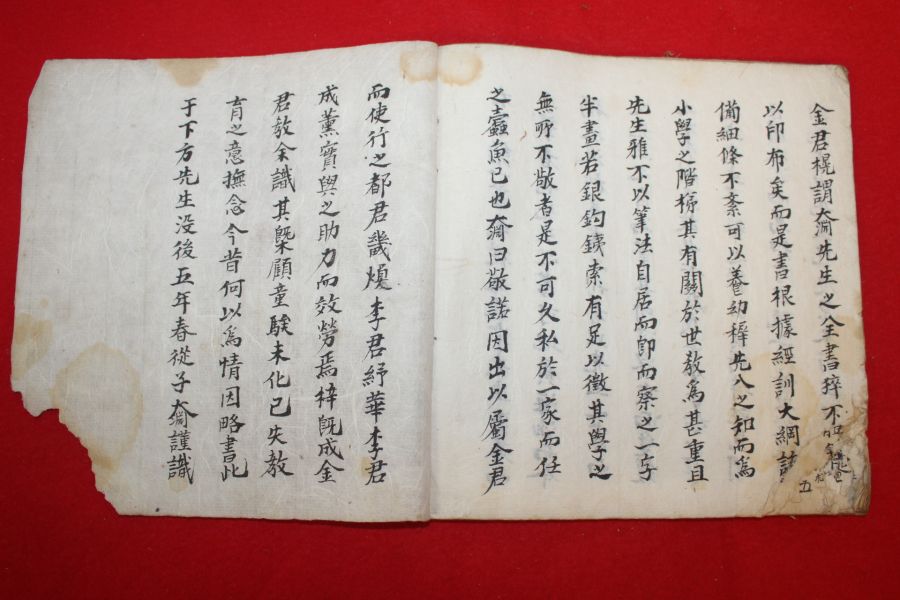 金君㮒謂奫先生之全書猝不
以印布矣而是書根據經訓大綱該
備細條不紊可以養幼穉先入之知而爲
小學之階梯其有關於世敎爲甚重且
先生雅不以筆法自居而卽而察之一字
半畫若銀鈎銕索有足以徵其學之
無所不敬者是不可久私於一家而任
之蠹魚已也奫曰敬諾因出以屬金君
而使行之都君畿煥李君紓華李君
成薰實與之助力而效勞焉梓旣成金
君敎余識其槩顧童騃未化已失敎
育之意撫念今昔何以爲情因略書此
于下方先生没後五年春從子奫謹識
五